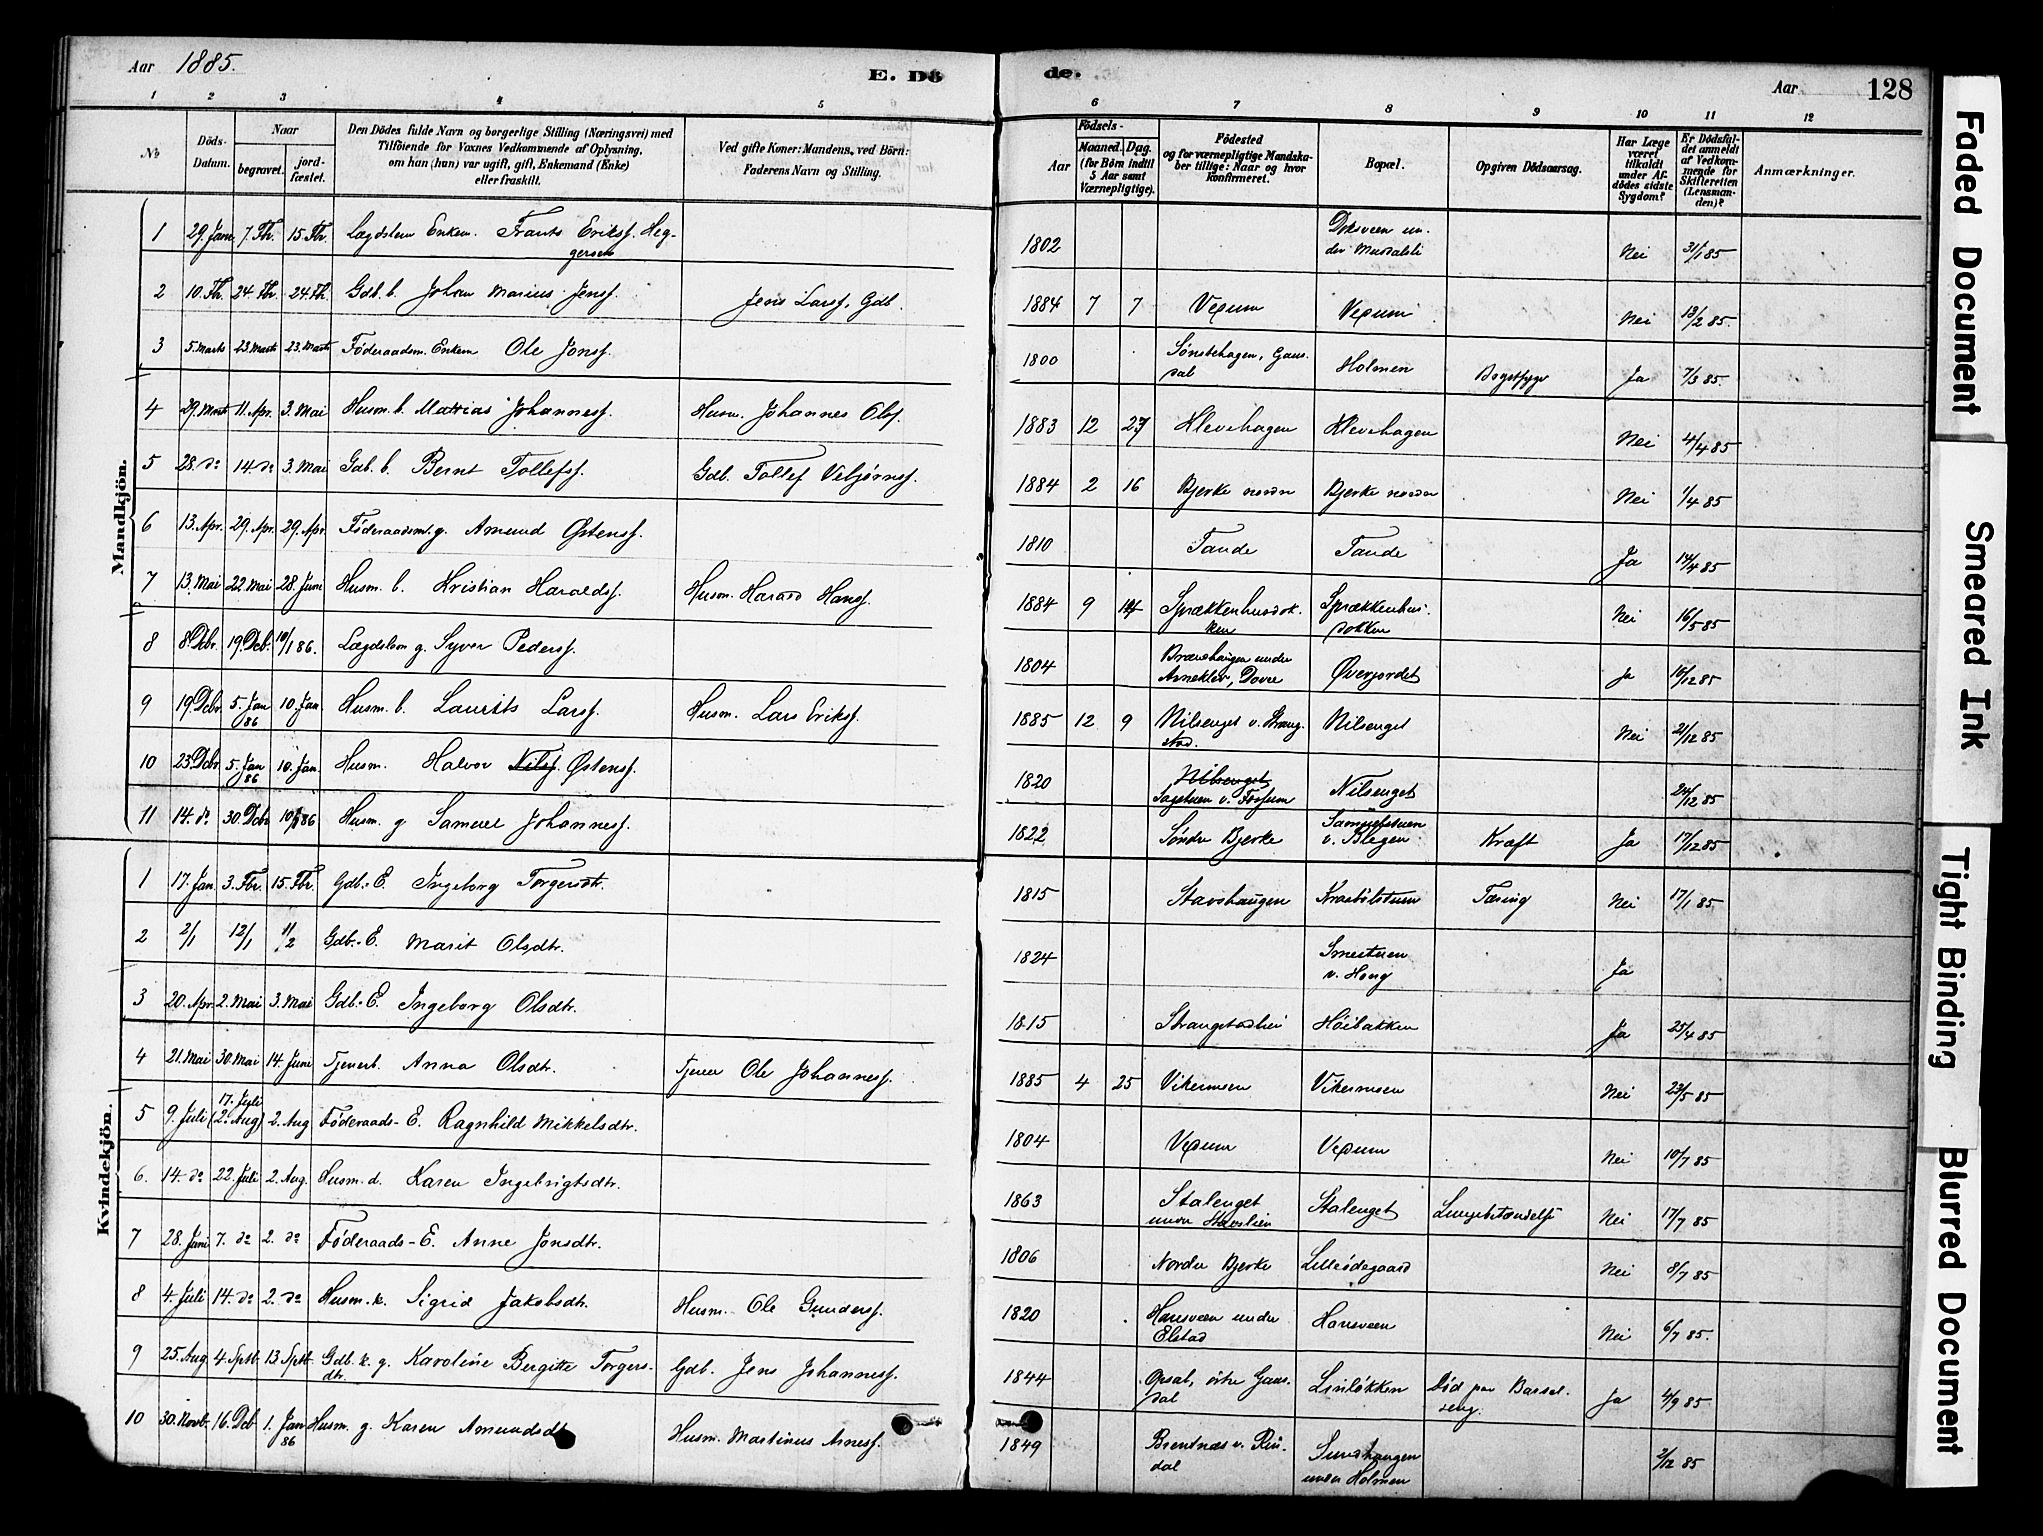 Aar 1885.
E. Dö
de.
Aar
128
1 2 3 4 5 6 7 8 9 10 11 12
No
Döds-Datum.
Naar
begravet.
jord-fæstet.
Den Dödes fulde Navn og borgerlige Stilling (Næringsvei) med
Tilföiende for Voxnes Vedkommende af Oplysning,
om han (hun) var ugift, gift, Enkemand (Enke)
eller fraskilt.
Ved gifte Koner: Mandens, ved Börn:
Faderens Navn og Stilling.
Aar
Födsels-
Maaned. Dag.
(for Børn indtil
5 Aar samt
Værnepligtige).
Födested
og for værnepligtige Mandska-
ber tillige: Naar og hvor
konfirmeret.
Bopæl.
Opgiven Dödsaarsag.
Har Læge
været
tilkaldt
under Af-
dödes sidste
Sygdom?
Er Dödsfal-
det anmeldt
af Vedkom-
mende for
Skifteretten
(Lensman-
den)?
Anmærkninger.
Mandkjön.
1 29. Jan 7. Fbr. 15. Fbr. Lægdslem Enkem. Frants Eriksf. Heg-
gersen 1802 under Musdalsli Nei 31/1 85
2 10. Fbr. 24. Fbr. 24. Fbr. Gdb. b. Johan Marius Jensf. Jens Larsf. Gdb. 1884 7 7 Vexum Vexum Nei 13/2 85.
3 5. Marts 23. Marts 23. Marts Føderaadsm. Enkem Ole Jonsf. 1800 Sønstehagen, Gaus-
dal Holmen Brystsyge Ja 7/3 85.
4 29. Marts 11. Apr. 3. Mai Husm. b. Mattias Johannesf. Husm. Johannes Olsf. 1883 12 27 Klevehagen Klevehagen Nei 4/4 85
5 28. do 14. do 3. Mai Gdb. b. Bernt Tollefsf. Gdb. Tollef Vebjørnsf. 1884 2 16 Bjerke nordre Bjerke nordre Nei 1/4 85
6 13. Apr. 29. Apr. 29. Apr. Føderaadsm. g. Amund Østensf. 1810 Tande Tande Ja 14/4 85
7 13. Mai 22. Mai 28. Juni Husm. b. Kristian Haraldsf. Husm. Harald Hansf. 1884 9 14 Sprækkenhusdok-
ken Sprækkenhus-
dokken Nei 16/5 85
8 8. Dcbr. 19. Dcb. 10/1 86. Lægdslem g. Syver Pedersf. 1804 Brænhaugen under
Arneklev, Dovre Øverjordet Ja 16/12 85
9 19. Dcbr. 5. Jan 86 10. Jan. Husm. b. Laurits Larsf. Husm. Lars Eriksf. 1885 12 9 Nilsenget v. Strang-
stad. Nilsenget Nei 21/12 85
10 23. Dcbr 5. Jan 86 10. Jan. Husm. Halvor Nilsf. Østensf. 1820 Nilsenget
Sagstuen v. Forsum Nilsenget 24/12 85
11 14. do 30. Dcbr 10/1 86 Husm. g Samuel Johannesf. 1822 Søndre Bjerke Samuelstuen
v. Blegen Kræft Ja 17/12 85
Kvindekjön.
1 17. Jan. 3. Fbr. 15. Fbr. Gdb.-E. Ingeborg Torgersdtr. 1815 Stavshaugen Kraabølstuen Tæring Nei 17/1 85
2 2/1 12/1 11/2 Gdb.-E. Marit Olsdtr. 1824 Smestuen
v. Hong Ja
3 20. Apr. 2. Mai 3. Mai Gdb.-E. Ingeborg Olsdtr. 1815 Strangstadlien Høibakken Ja 25/4 85
4 21. Mai 30. Mai 14. Juni Tjenerb. Anna Olsdtr. Tjener Ole Johannesf. 1885 4 25 Vikermoen Vikermoen Nei 23/5 85
5 9. Juli 17. Juli (2. Aug) 2. Aug Føderaads-E. Ragnhild Mikkelsdtr. 1804 Vexum Vexum Nei 10/7 85
6. 14. do 22. Juli 2. Aug. Husm. d. Karen Ingebrigtsdtr. 1863 Stalenget
under Stavslien Stalenget Lungebetændelse Nei 17/7 85
7 28. Juni 7. do 2. do Føderaads-E. Anne Jonsdtr. 1806 Nordre Bjerke Lilleødegaard Nei 8/7 85
8 4. Juli 14. do 2. do Husm. k. Sigrid Jakobsdtr. Husm. Ole Gundersf. 1820 Hansveen under
Elstad Hansveen Nei 6/7 85.
9 25. Aug 4. Septb. 13. Septb. Gdb. k. g. Karoline Bergitte Torgers-
dtr. Gdb. Jens Johannesf. 1844 Opsal, østre Gaus-
dal Linløkken Død paa Barsel-
seng. Ja 4/9 85
10 30. Novb. 16. Dcb 1. Jan 86 Husm. g. Karen Amundsdt Husm. Martinus Arnesf. 1849 Brentnæs v. Rin-
dal under Holmen 2/12 85
Faded Document
Smeared Ink
Tight Binding
Blurred Document